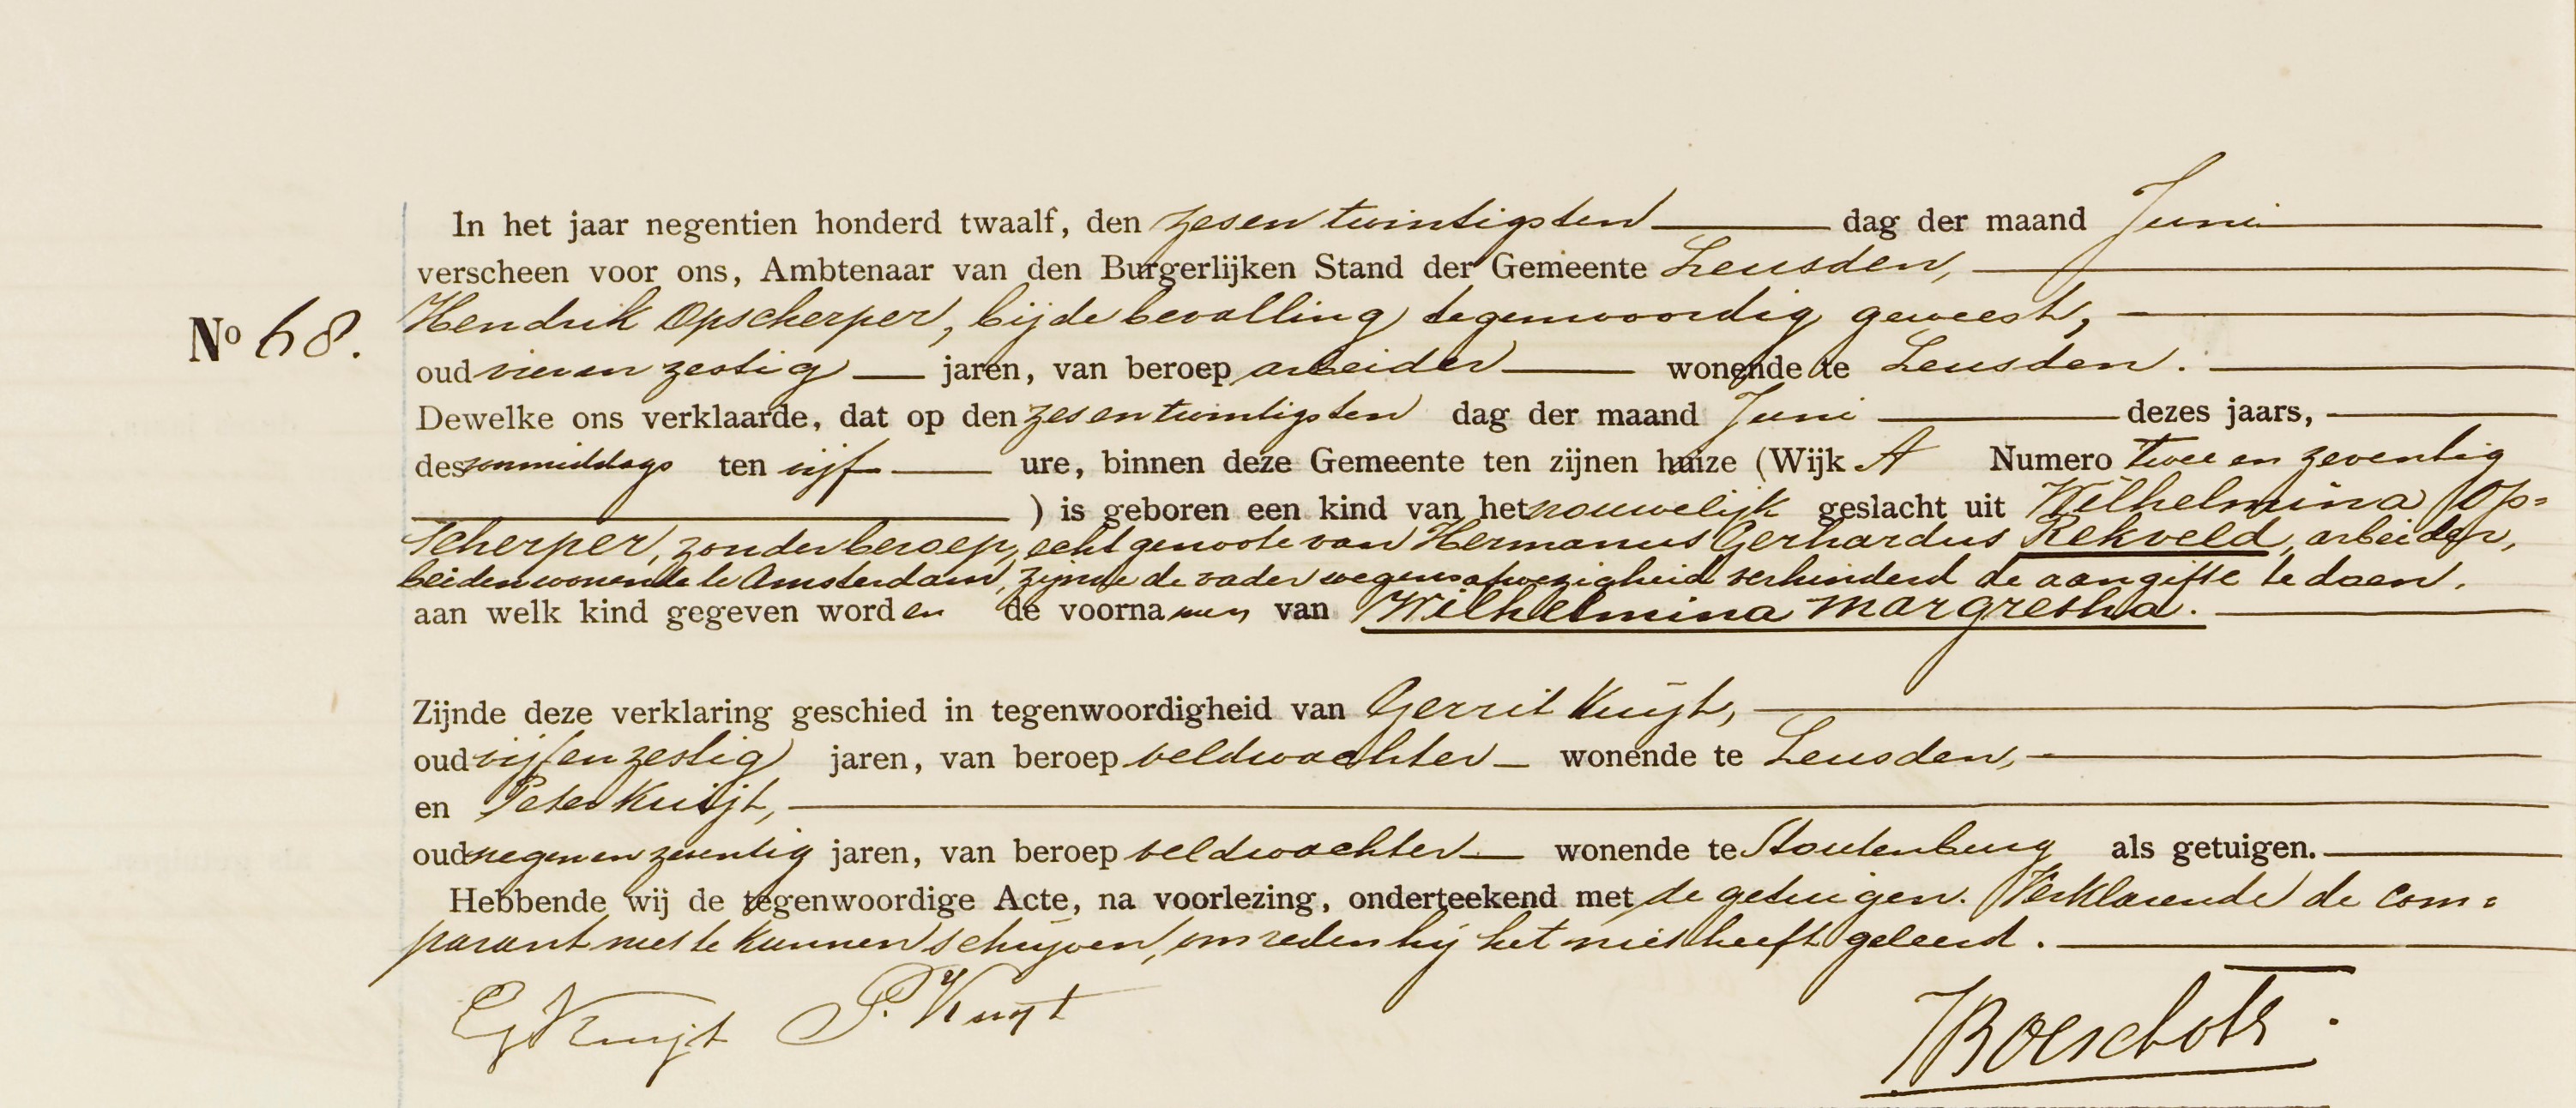 In het jaar negentien honderd twaalf, den zesentwintigsten dag der maand Juni
verscheen voor ons, Ambtenaar van den Burgerlijken Stand der Gemeente Leusden,
No 68.
Hendrik Opscherper, bij de bevalling tegenwoordig geweest,
oud vier en zestig jaren, van beroep arbeider wonende te Leusden.
Dewelke ons verklaarde, dat op den zesentwintigsten dag der maand Juni dezes jaars,
des voormiddags ten vijf ure, binnen deze Gemeente ten zijnen huize (Wijk A Numero twee en zeventig
) is geboren een kind van het vrouwelijk geslacht uit Wilhelmina Op=
scherper, zonder beroep, echtgenoote van Hermanus Gerhardus Rekveld, arbeider,
beiden wonende te Amsterdam, zijnde de vader wegens afwezigheid verhinderd de aangifte te doen.
aan welk kind gegeven worden de voornamen van Wilhelmina Margretha.
Zijnde deze verklaring geschied in tegenwoordigheid van Gerrit Kuijt,
oud vijf en zestig jaren, van beroep veldwachter wonende te Leusden,
en Peter Kuijt,
oud negen en zeventig jaren, van beroep veldwachter wonende te Stoutenburg als getuigen.
Hebbende wij de tegenwoordige Acte, na voorlezing, onderteekend met de getuigen. Verklarende de com=
parant niet te kunnen schrijven, om reden hij het niet heeft geleerd.
G Kuijt P. Kuijt